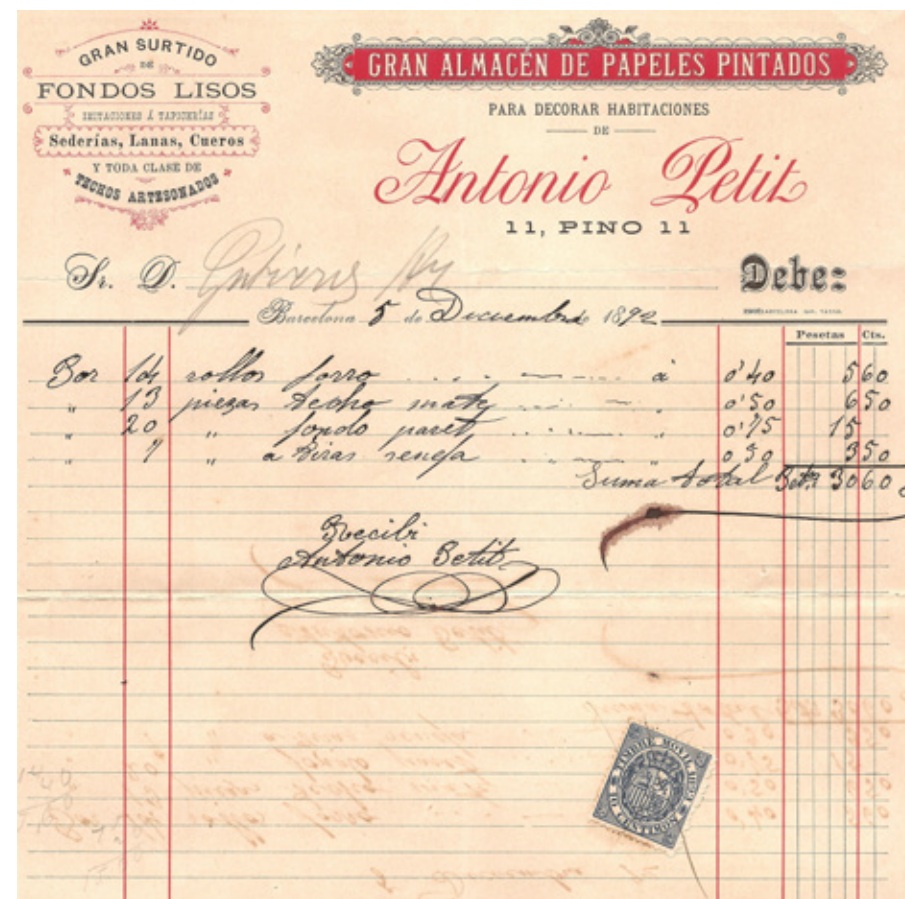 GRAN SURTIDO
DE
FONDOS LISOS
IMITACIONES Á TAPICERÍAS
Sederías, Lanas, Cueros
Y TODA CLASE DE
TECHOS ARTESONADOS
GRAN ALMACÉN DE PAPELES PINTADOS
PARA DECORAR HABITACIONES
DE
Antonio Petit
11, PINO 11
Sr. D. Gutierrez Debe:
Barcelona 5 de Diciembre 1892
Pesetas Cts.
Por 14 rollos forro à 0'40 5 60
" 13 piezas techo mate " 0'50 6 50
" 20 " fondo paret " 0'75 15
" 7 " a tiras " 0'50 3 50
Suma total Pets 30 60
Recibi
Antonio Petit
TIMBRE MOVIL
10 CENTIMOS